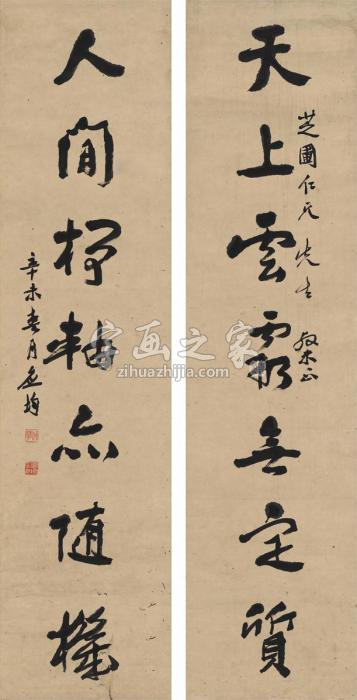 天上雲霞無定質
芝圃仁兄先生 教正
人間杼軸亦隨機
辛未春月
字画之家
zihuazhijia.com